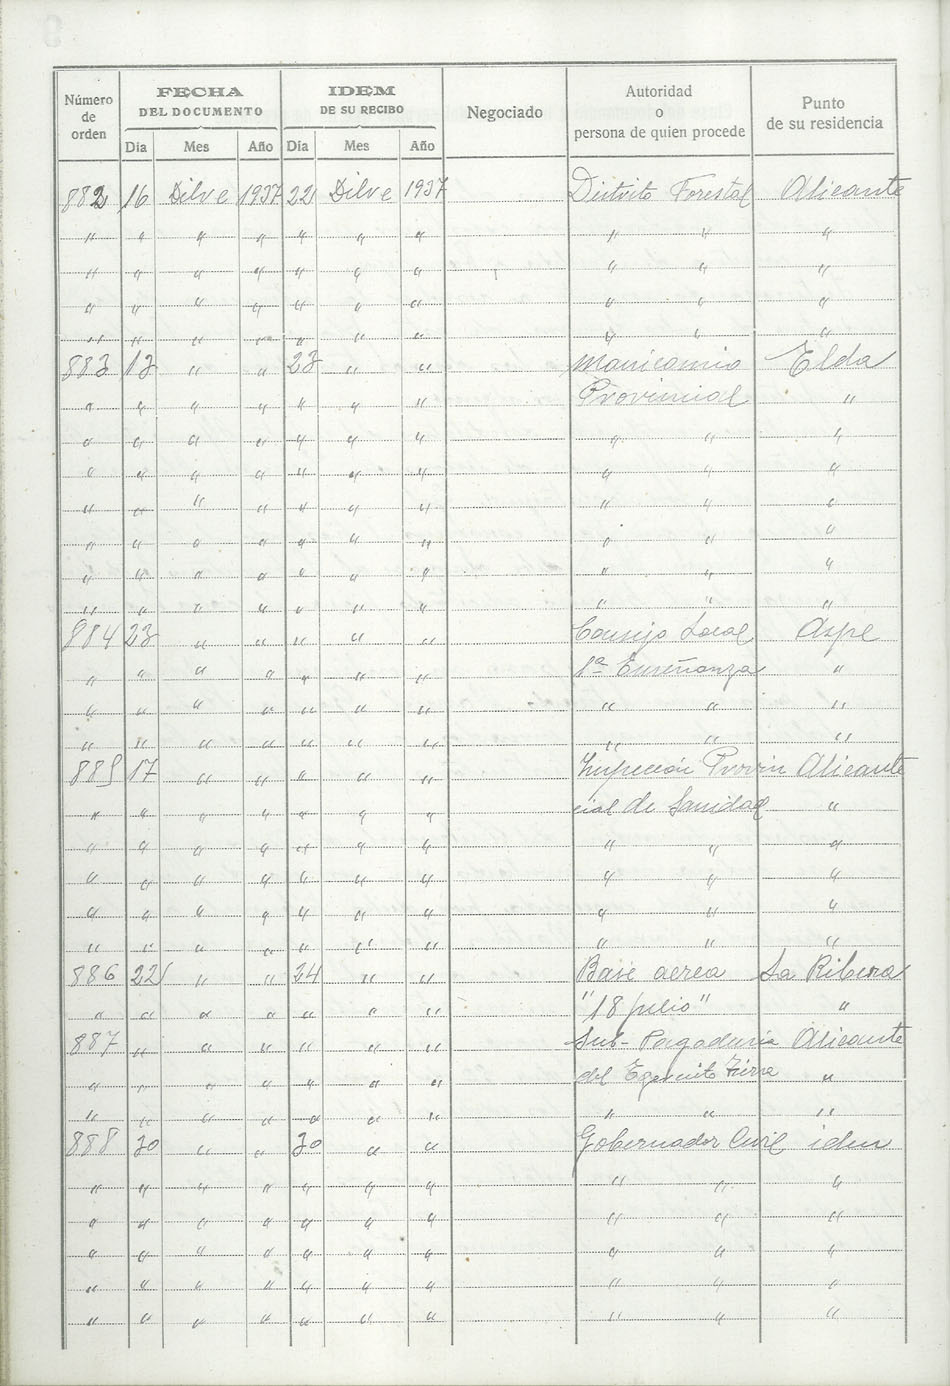 Número de orden | FECHA DEL DOCUMENTO | IDEM DE SU RECIBO | Negociado | Autoridad o persona de quien procede | Punto de su residencia
Día Mes Año Día Mes Año
882 16 Dibre 1937 22 Dibre 1937 Distrito Forestal Alicante
" " " " " " " " " "
" " " " " " " " " "
" " " " " " " " " "
" " " " " " " " " "
883 13 " " 23 " " Manicomio Elda
" " " " " " " Provincial "
" " " " " " " " " "
" " " " " " " " " "
" " " " " " " " " "
" " " " " " " " " "
" " " " " " " " " "
" " " " " " " " " "
884 23 " " " " " Consejo Local Aspe
" " " " " " " 1ª Enseñanza "
" " " " " " " " " "
" " " " " " " " " "
885 17 " " " " " Inspeccion Provin Alicante
" " " " " " " cial de Sanidad "
" " " " " " " " " "
" " " " " " " " " "
" " " " " " " " " "
" " " " " " " " " "
886 22 " " 24 " " Base aerea La Ribera
" " " " " " " "18 julio" "
887 " " " " " " Sub-Pagaduria Alicante
" " " " " " " del Egercito Tierra "
" " " " " " " " " "
888 30 " " 30 " " Gobernador Civil idem
" " " " " " " " " "
" " " " " " " " " "
" " " " " " " " " "
" " " " " " " " " "
" " " " " " " " " "